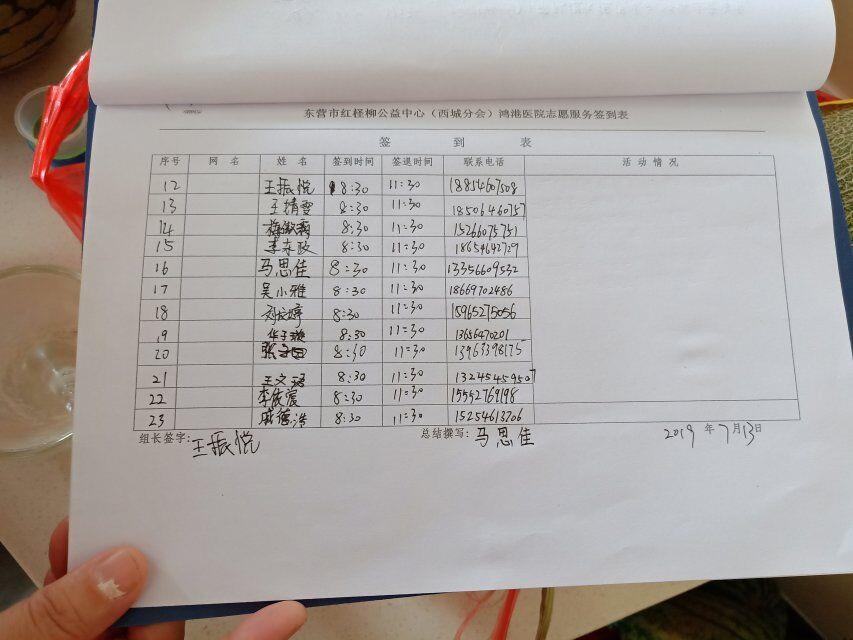 东营市红柽柳公益中心（西城分会）鸿港医院志愿服务签到表
签 到 表
序号 网 名 姓 名 签到时间 签退时间 联系电话 活 动 情 况
12 王振悦 8:30 11:30 18854607508
13 王婧雯 8:30 11:30 18506460757
14 8:30 11:30 15266075751
15 8:30 11:30 18654642729
16 马思佳 8:30 11:30 13356609532
17 吴小雅 8:30 11:30 18669702486
18 8:30 11:30 15965275056
19 8:30 11:30 13656470201
20 8:30 11:30 13963398175
21 8:30 11:30 13245459507
22 8:30 11:30 15552769198
23 8:30 11:30 15254613706
组长签字：王振悦 总结撰写：马思佳 2019 年 7 月 13 日